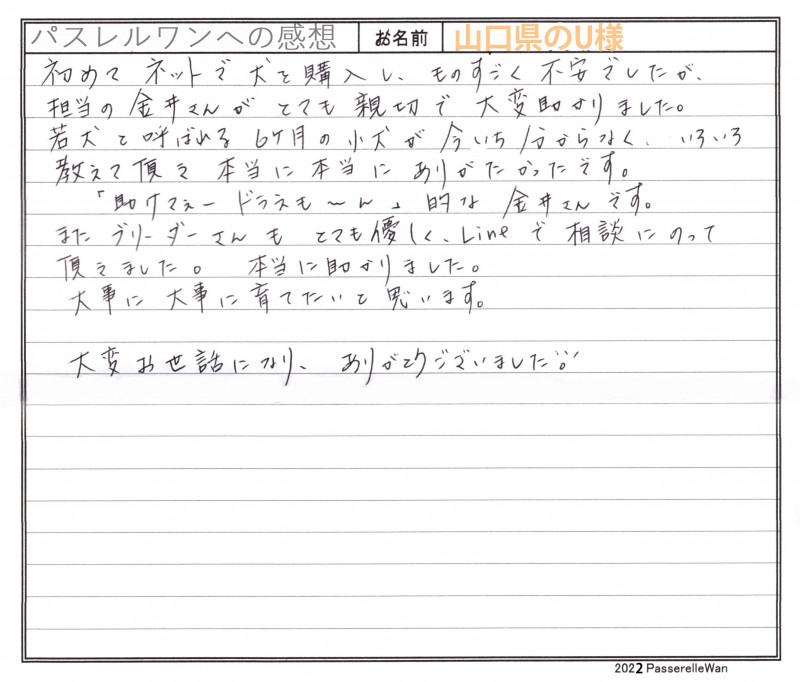 パスレルワンへの感想 お名前 山口県のU様
初めて ネットで 犬を購入し、ものすごく 不安でしたが、
担当の 金井さんが とても 親切で 大変助かりました。
若犬と呼ばれる 6ケ月の小犬が 今いち 分からなく、いろいろ
教えて頂き 本当に本当に ありがたかったです。
「助けてぇー ドラえも〜ん」的な 金井さんです。
また ブリーダーさんも とても優しく、Lineで 相談にのって
頂きました。 本当に助かりました。
大事に 大事に育てたいと思います。
大変お世話になり、ありがとうございました
2022 PasserelleWan